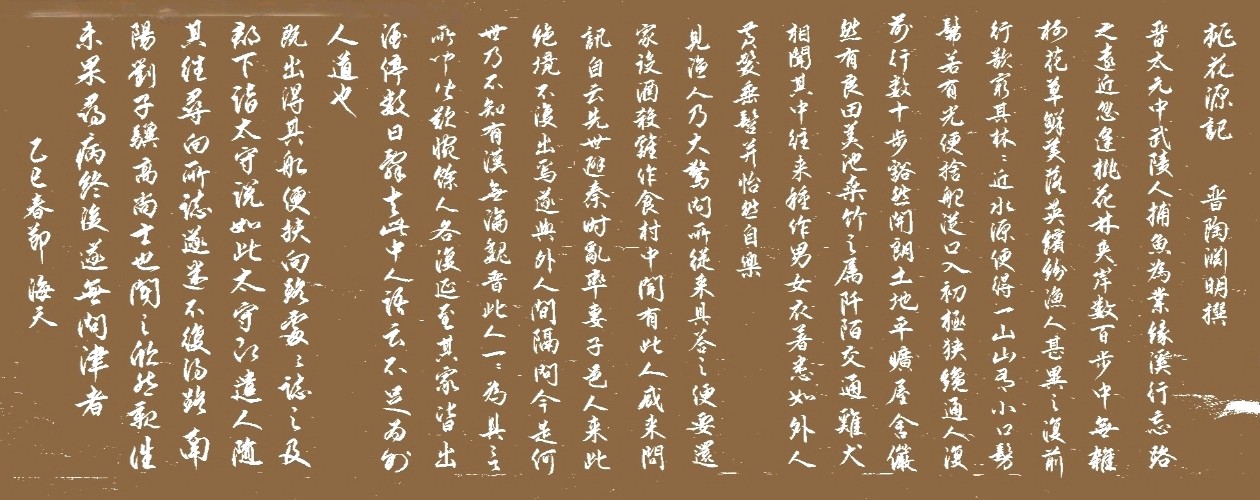 桃花源記 晋陶渊明撰
晋太元中武陵人捕魚為業緣溪行忘路
之遠近忽逢桃花林夹岸数百步中無雜
樹花草鮮美落英繽紛漁人甚異之復前
行欲窮其林林近水源便得一山山有小口髣
髴若有光便捨船從口入初極狭纔通人復
前行数十步豁然開朗土地平曠屋舍儼
然有良田美池桑竹之属阡陌交通雞犬
相聞其中往来種作男女衣著悉如外人
黄髮垂髫并怡然自樂
見漁人乃大驚问所從来具答之便要還
家设酒殺雞作食村中聞有此人咸来問
訊自云先世避秦时亂率妻子邑人来此
绝境不復出焉遂與外人間隔问今是何
世乃不知有漢無論魏晋此人一一為具言
所闻皆歎惋餘人各復延至其家皆出
酒食停数日辞去此中人语云不足为外
人道也
既出得其船便扶向路處處誌之及
郡下诣太守说如此太守即遣人随
其往尋向所誌遂迷不復得路南
陽劉子驥高尚士也聞之欣然親往
未果尋病終後遂無问津者
乙巳春節 海天